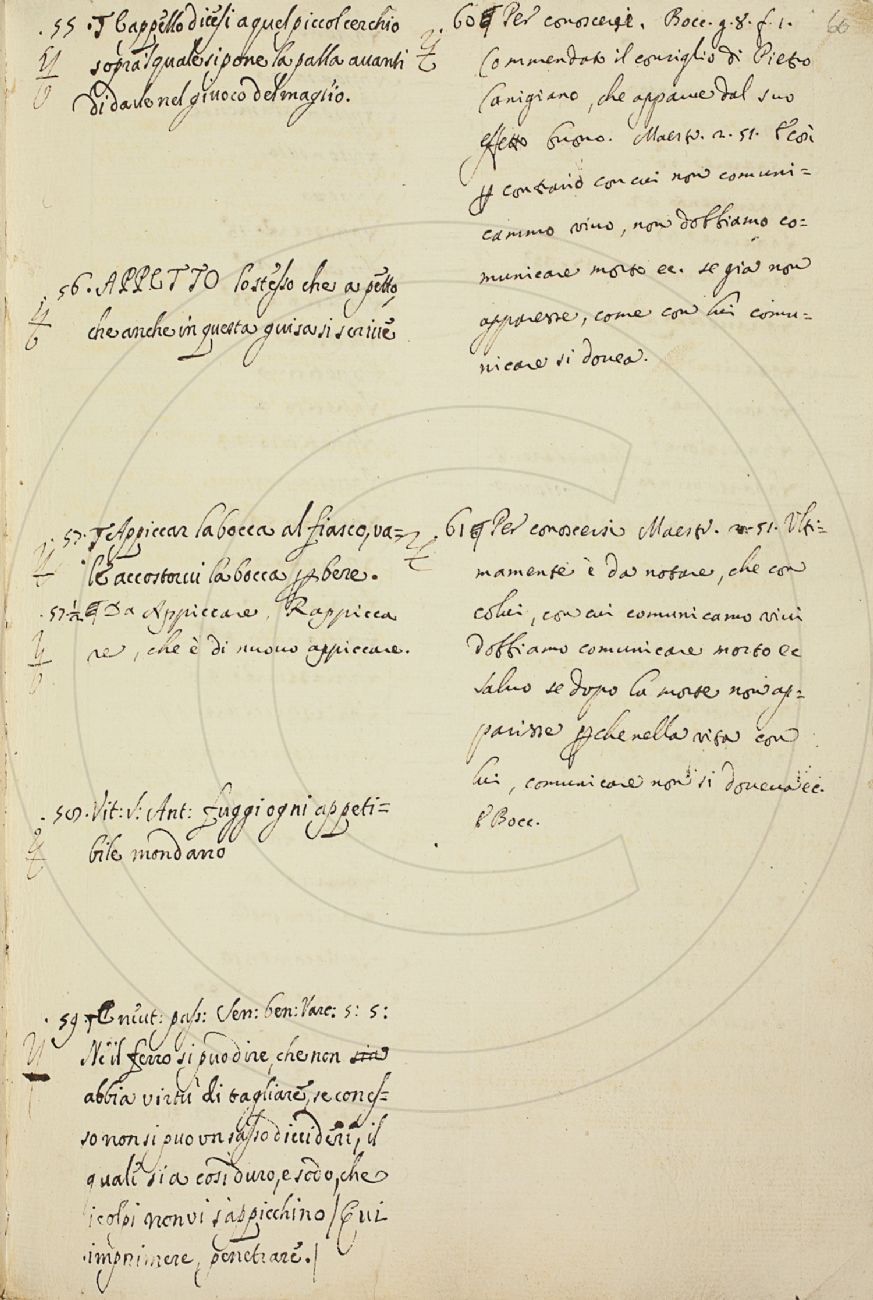 55. ¶ Cappello dicesi a quel piccol cerchio
sopra 'l quale si pone la palla avanti
di darle nel giuoco del maglio.
56. APPETTO lo stesso che a petto,
che anche in questa guisa si scrive
57. ¶ Appiccar la bocca al fiasco, va=
le accostarvi la bocca p bere.
57½ ¶ Da Appiccare, Rappicca
re, che è di nuovo appiccare.
58. Vit: S: Ant: fuggi ogni appeti=
bile mondano
59 ¶ E niut: pass: Sen: ben: Varc: 5: 5:
Nè il ferro si può dire, che non sia
abbia virtù di tagliare, se con es-
so non si può un sasso dividere, il
quale sia così duro, e sodo, che
i colpi non vi s'appicchino / Qui
imprimere, penetrare. /
66
60 ¶ Per conoscersi. Bocc. g. 8. f. 1.
Commendato il consiglio di Pietro
Canigiano, che apparve dal suo
effetto buono. Maestr. 2. 51. E così
p contrario con cui non comuni=
cammo vivo, non dobbiamo co=
municare morto ec. se già non
apparesse, come con lui comu=
nicare si dovea.
61 ¶ Per conoscersi Maestr. 2. 51. Ulti=
mamente è da notare, che con
colui, con cui comunicamo vivi
dobbiamo comunicare morto ec
salvo se dopo la morte non ap=
parisse p che nella vita con
lui, comunicare non si doveva ec.
E Bocc.